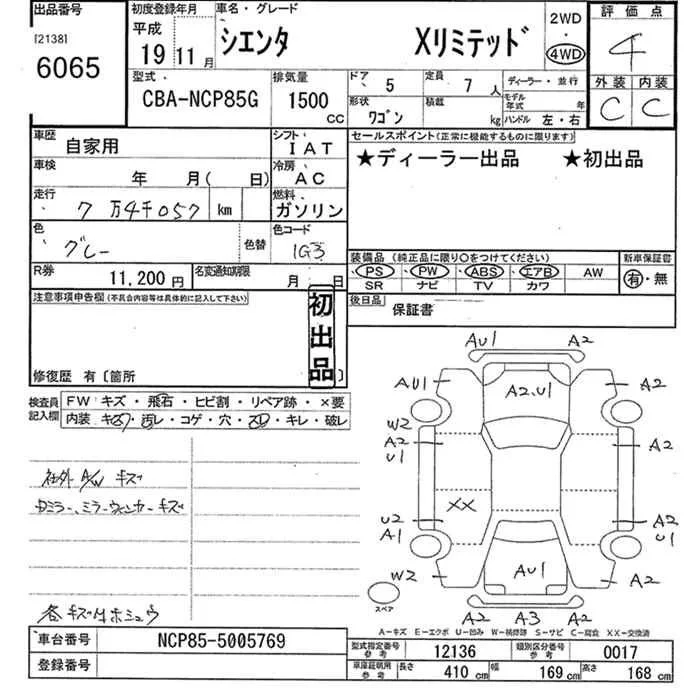 出品番号 初度登録年月 車名・グレード 2WD 評価点
[2138] 平成 シエンタ Xリミテッド ・ 4
6065 19年 11月 4WD
型式 排気量 ドア 5 定員 7人 ディーラー・並行 外装 内装
CBA-NCP85G 1500cc 形状 ワゴン 積載 kg モデル年式 年 ハンドル 左・右 C C
車歴 自家用 シフト IAT セールスポイント(正常に機能するものに限ります)
車検 年 月( 日) 冷房 AC ★ディーラー出品 ★初出品
走行 7万4千057 km 燃料 ガソリン
色 グレー 色替 色コード 1G3
装備品 (純正品に限り○をつけてください) 新車保証書
R券 11,200円 名変通知期限 月 日 PS PW ABS エアB AW 有・無
SR ナビ TV カワ
注意事項申告欄(不具合内容等は具体的に記入して下さい) 初出品 後日品 保証書
修復歴 有〔箇所
検査員記入欄 FW キズ・飛石・ヒビ割・リペア跡・×要
内装・キズ・汚レ・コゲ・穴・スレ・キレ・破レ
社外A/W キズ
Dミラー、ミラーウィンカーキズ
各キズ付ホシュウ
AU1 A2
AU1 A2,U1 A2
W2
A2 A2
U1
XX
U2 A2
A1 U1
W2 AU1 A2
スペア
A2 A3 A2
A-キズ E-エクボ U-凹み W-補修跡 S-サビ C-腐食 XX-交換済
車台番号 NCP85-5005769 型式指定番号 参考 12136 類別区分番号 参考 0017
登録番号 車庫証明用 参考 長さ 410cm 幅 169cm 高さ 168cm